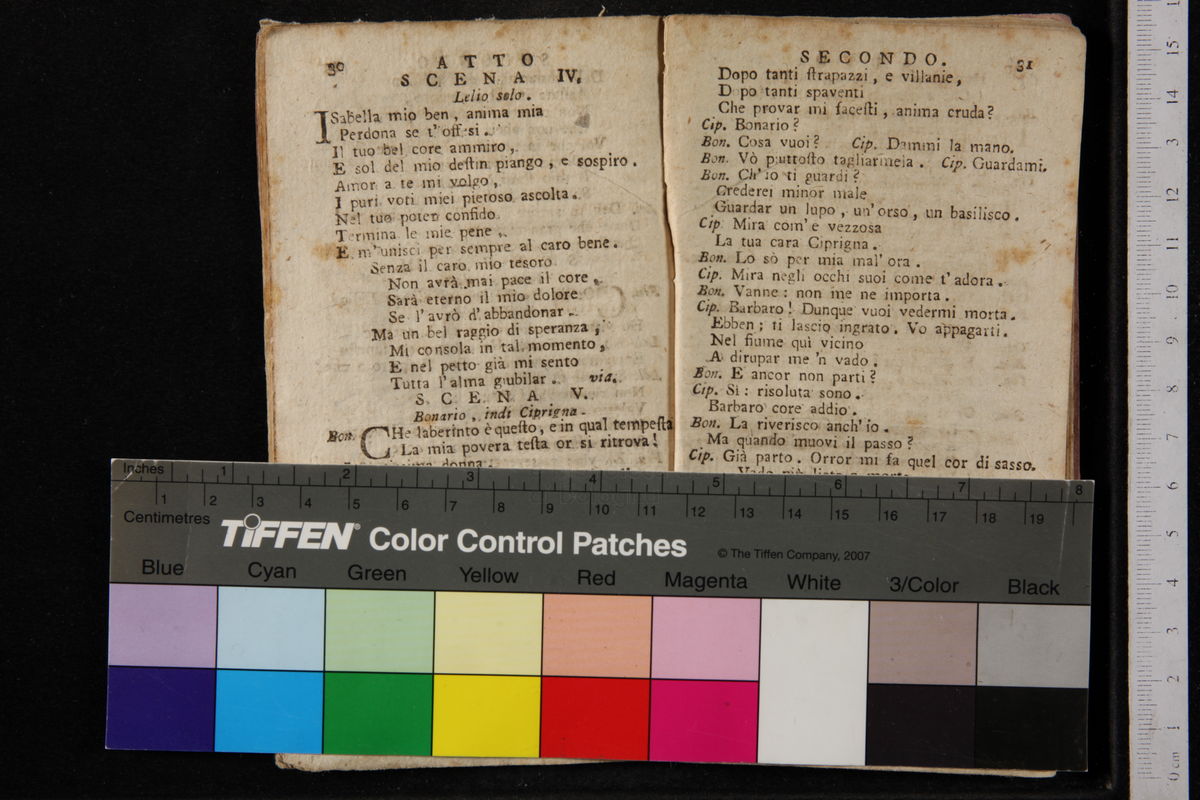 30
ATTO
SCENA IV.
Lelio solo.
ISabella mio ben, anima mia
Perdona se t'off si.
Il tuo bel core ammiro,
E sol del mio deſtin piango, e sospiro.
Amor a te mi volgo,
I puri voti miei pietoso ascolta.
Nel tuo poter confido
Termina le mie pene,
E m'unisci per sempre al caro bene.
Senza il caro mio tesoro
Non avrà mai pace il core,
Sarà eterno il mio dolore
Se l'avrò d'abbandonar.
Ma un bel raggio di speranza,
Mi consola in tal momento,
E nel petto già mi sento
Tutta l'alma giubilar. via.
SCENA V.
Bonario, indi Ciprigna.
Bon. CHe laberinto è queſto, e in qual tempeſta
La mia povera teſta or si ritrova!
donna.
SECONDO.
31
Dopo tanti ſtrapazzi, e villanie,
D po tanti spaventi
Che provar mi faceſti, anima cruda?
Cip. Bonario?
Bon. Cosa vuoi? Cip. Dammi la mano.
Bon. Vò piuttoſto tagliarmela. Cip. Guardami.
Bon. Ch'io ti guardi?
Crederei minor male
Guardar un lupo, un'orso, un basilisco.
Cip. Mira com'e vezzosa
La tua cara Ciprigna.
Bon. Lo sò per mia mal'ora.
Cip. Mira negli occhi suoi come t'adora.
Bon. Vanne: non me ne importa.
Cip. Barbaro! Dunque vuoi vedermi morta.
Ebben; ti lascio ingrato. Vo appagarti.
Nel fiume quì vicino
A dirupar me 'n vado.
Bon. E ancor non parti?
Cip. Sì: risoluta sono.
Barbaro core addio.
Bon. La riverisco anch'io.
Ma quando muovi il passo?
Cip. Già parto. Orror mi fa quel cor di sasso.
Inches 1 2 3 4 5 6 7 8
Centimetres 1 2 3 4 5 6 7 8 9 10 11 12 13 14 15 16 17 18 19
TIFFEN® Color Control Patches
© The Tiffen Company, 2007
Blue Cyan Green Yellow Red Magenta White 3/Color Black
0 cm 1 2 3 4 5 6 7 8 9 10 11 12 13 14 15